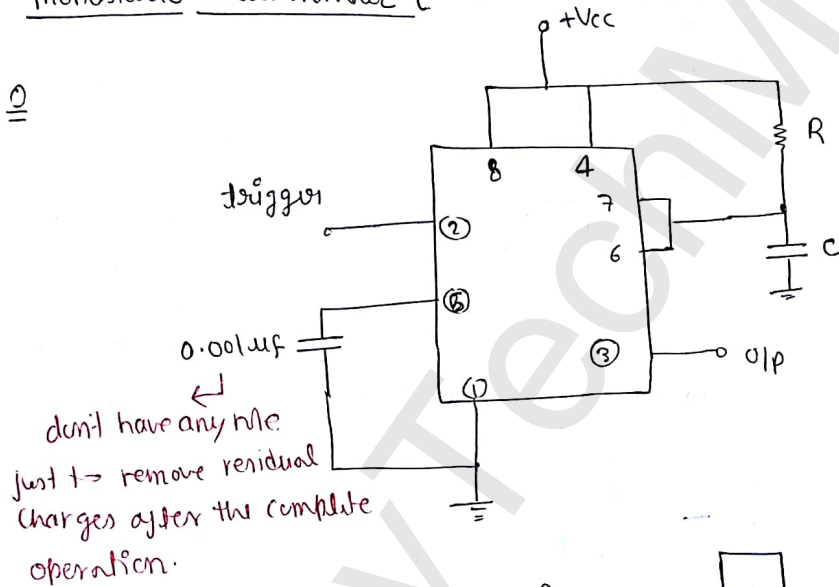 monostable
+Vcc
R
8 4
trigger
7
②
6
C
⑤
0.001 uf
③
O/P
①
don't have any role
just to remove residual
charges after the complete
operation.